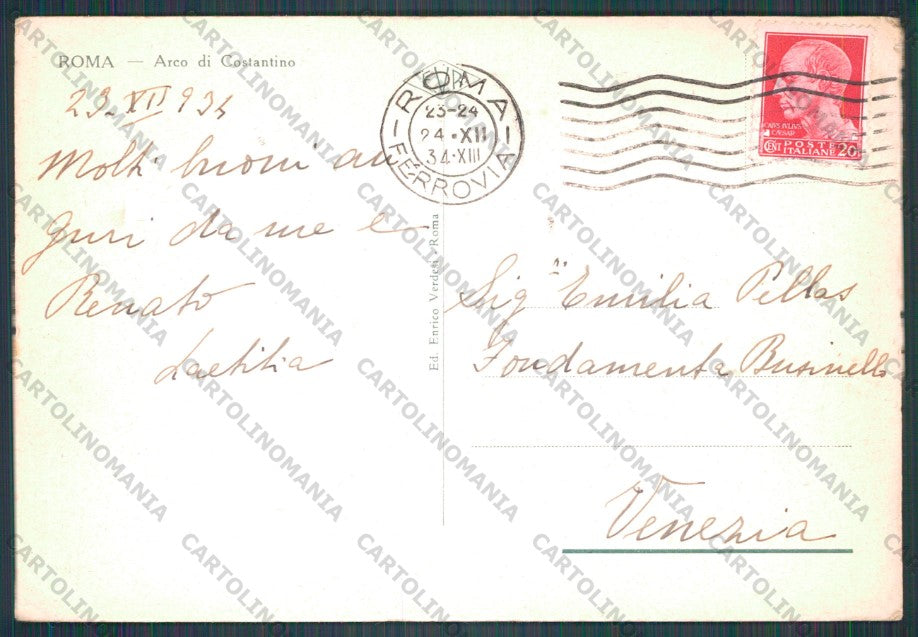 ROMA — Arco di Costantino
23. XII 934
Molti buoni au
guri da me e
Renato
Laetitia
Ed. Enrico Verdesi - Roma
ROMA
23-24
24·XII
34·XIII
FERROVIA
CAIVS IVLIVS
CAESAR
CENT POSTE
ITALIANE 20
Sig.ª Emilia Pellas
Fondamenta Businello
Venezia
CARTOLINOMANIA